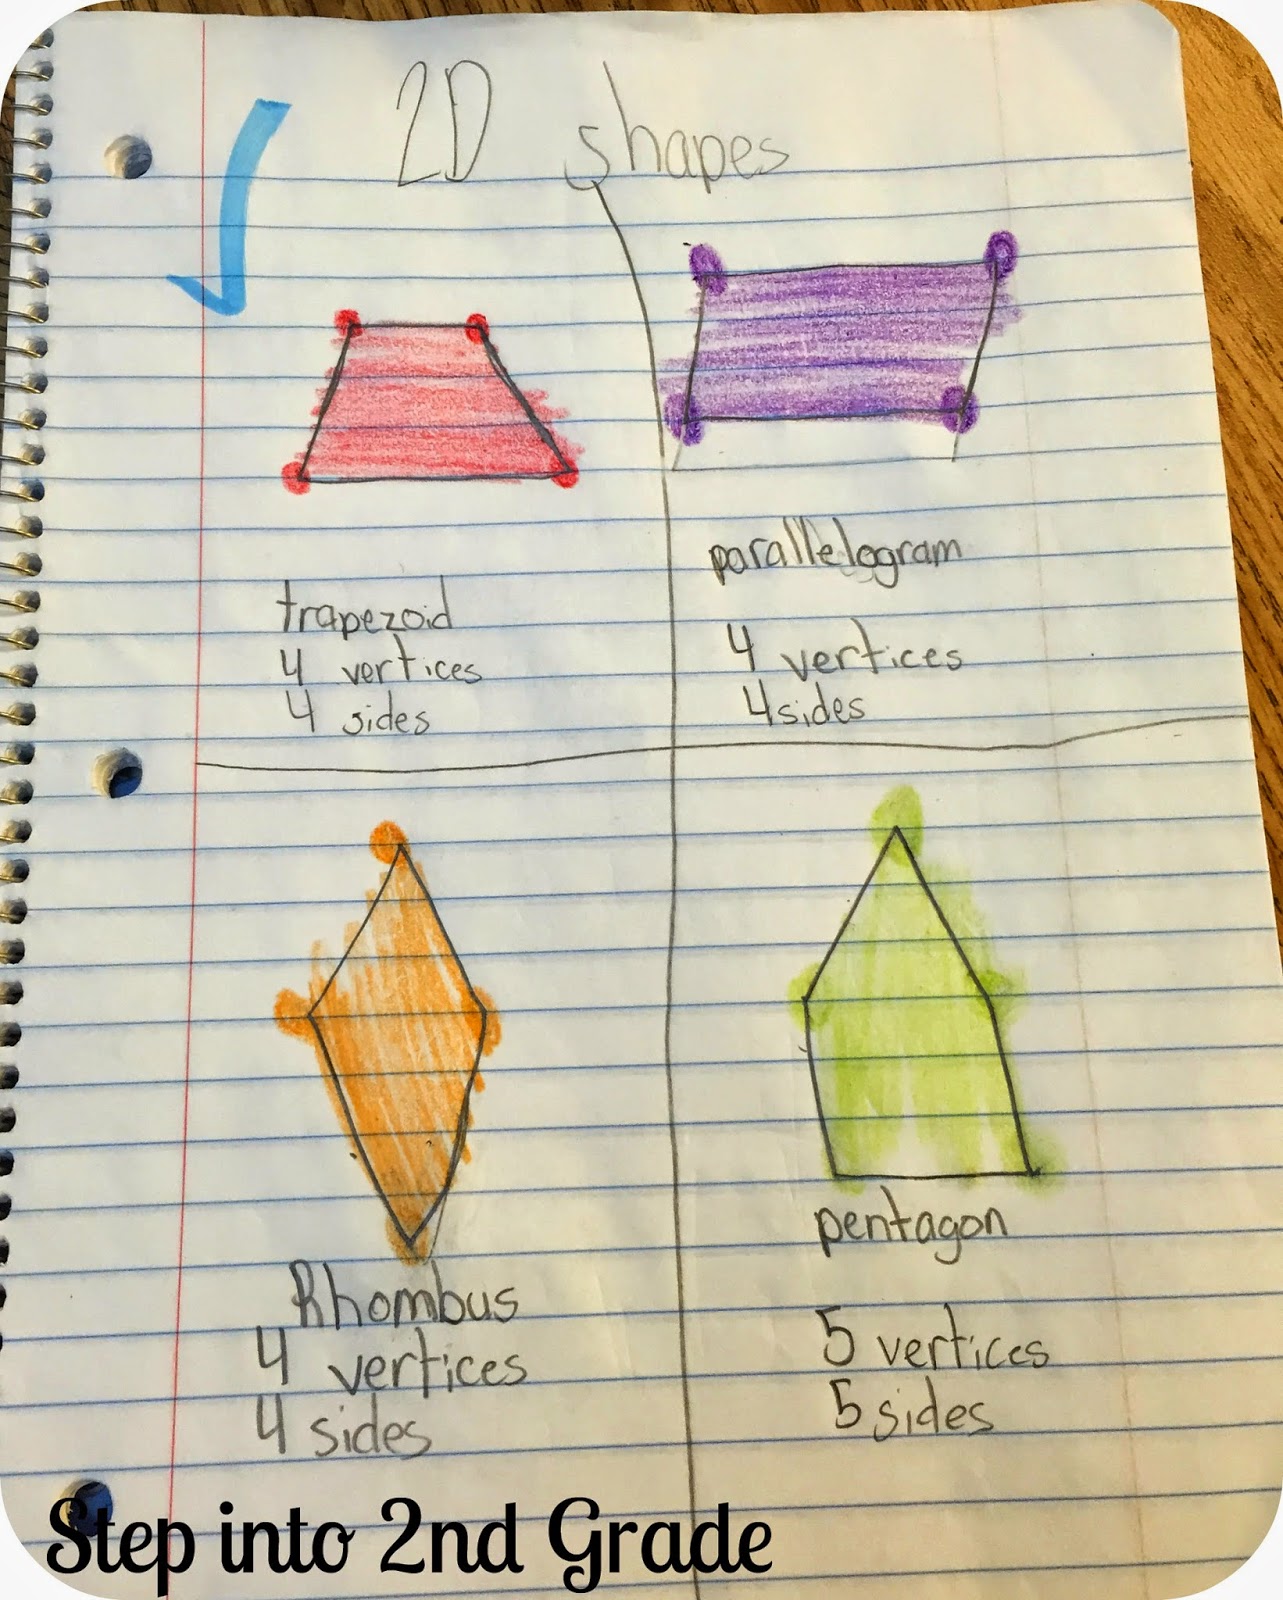 2D shapes
trapezoid
4 vertices
4 sides
parallelogram
4 vertices
4 sides
Rhombus
4 vertices
4 sides
pentagon
5 vertices
5 sides
Step into 2nd Grade